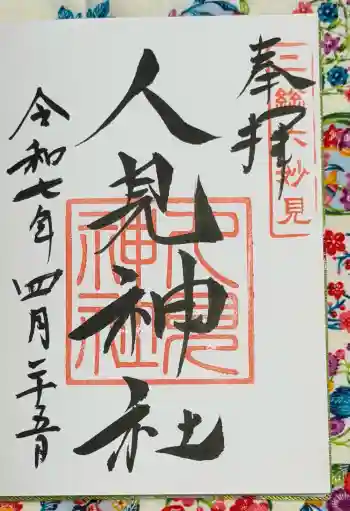 奉拝
二總六妙見
人見神社
人見
神社
令和七年四月二十五日